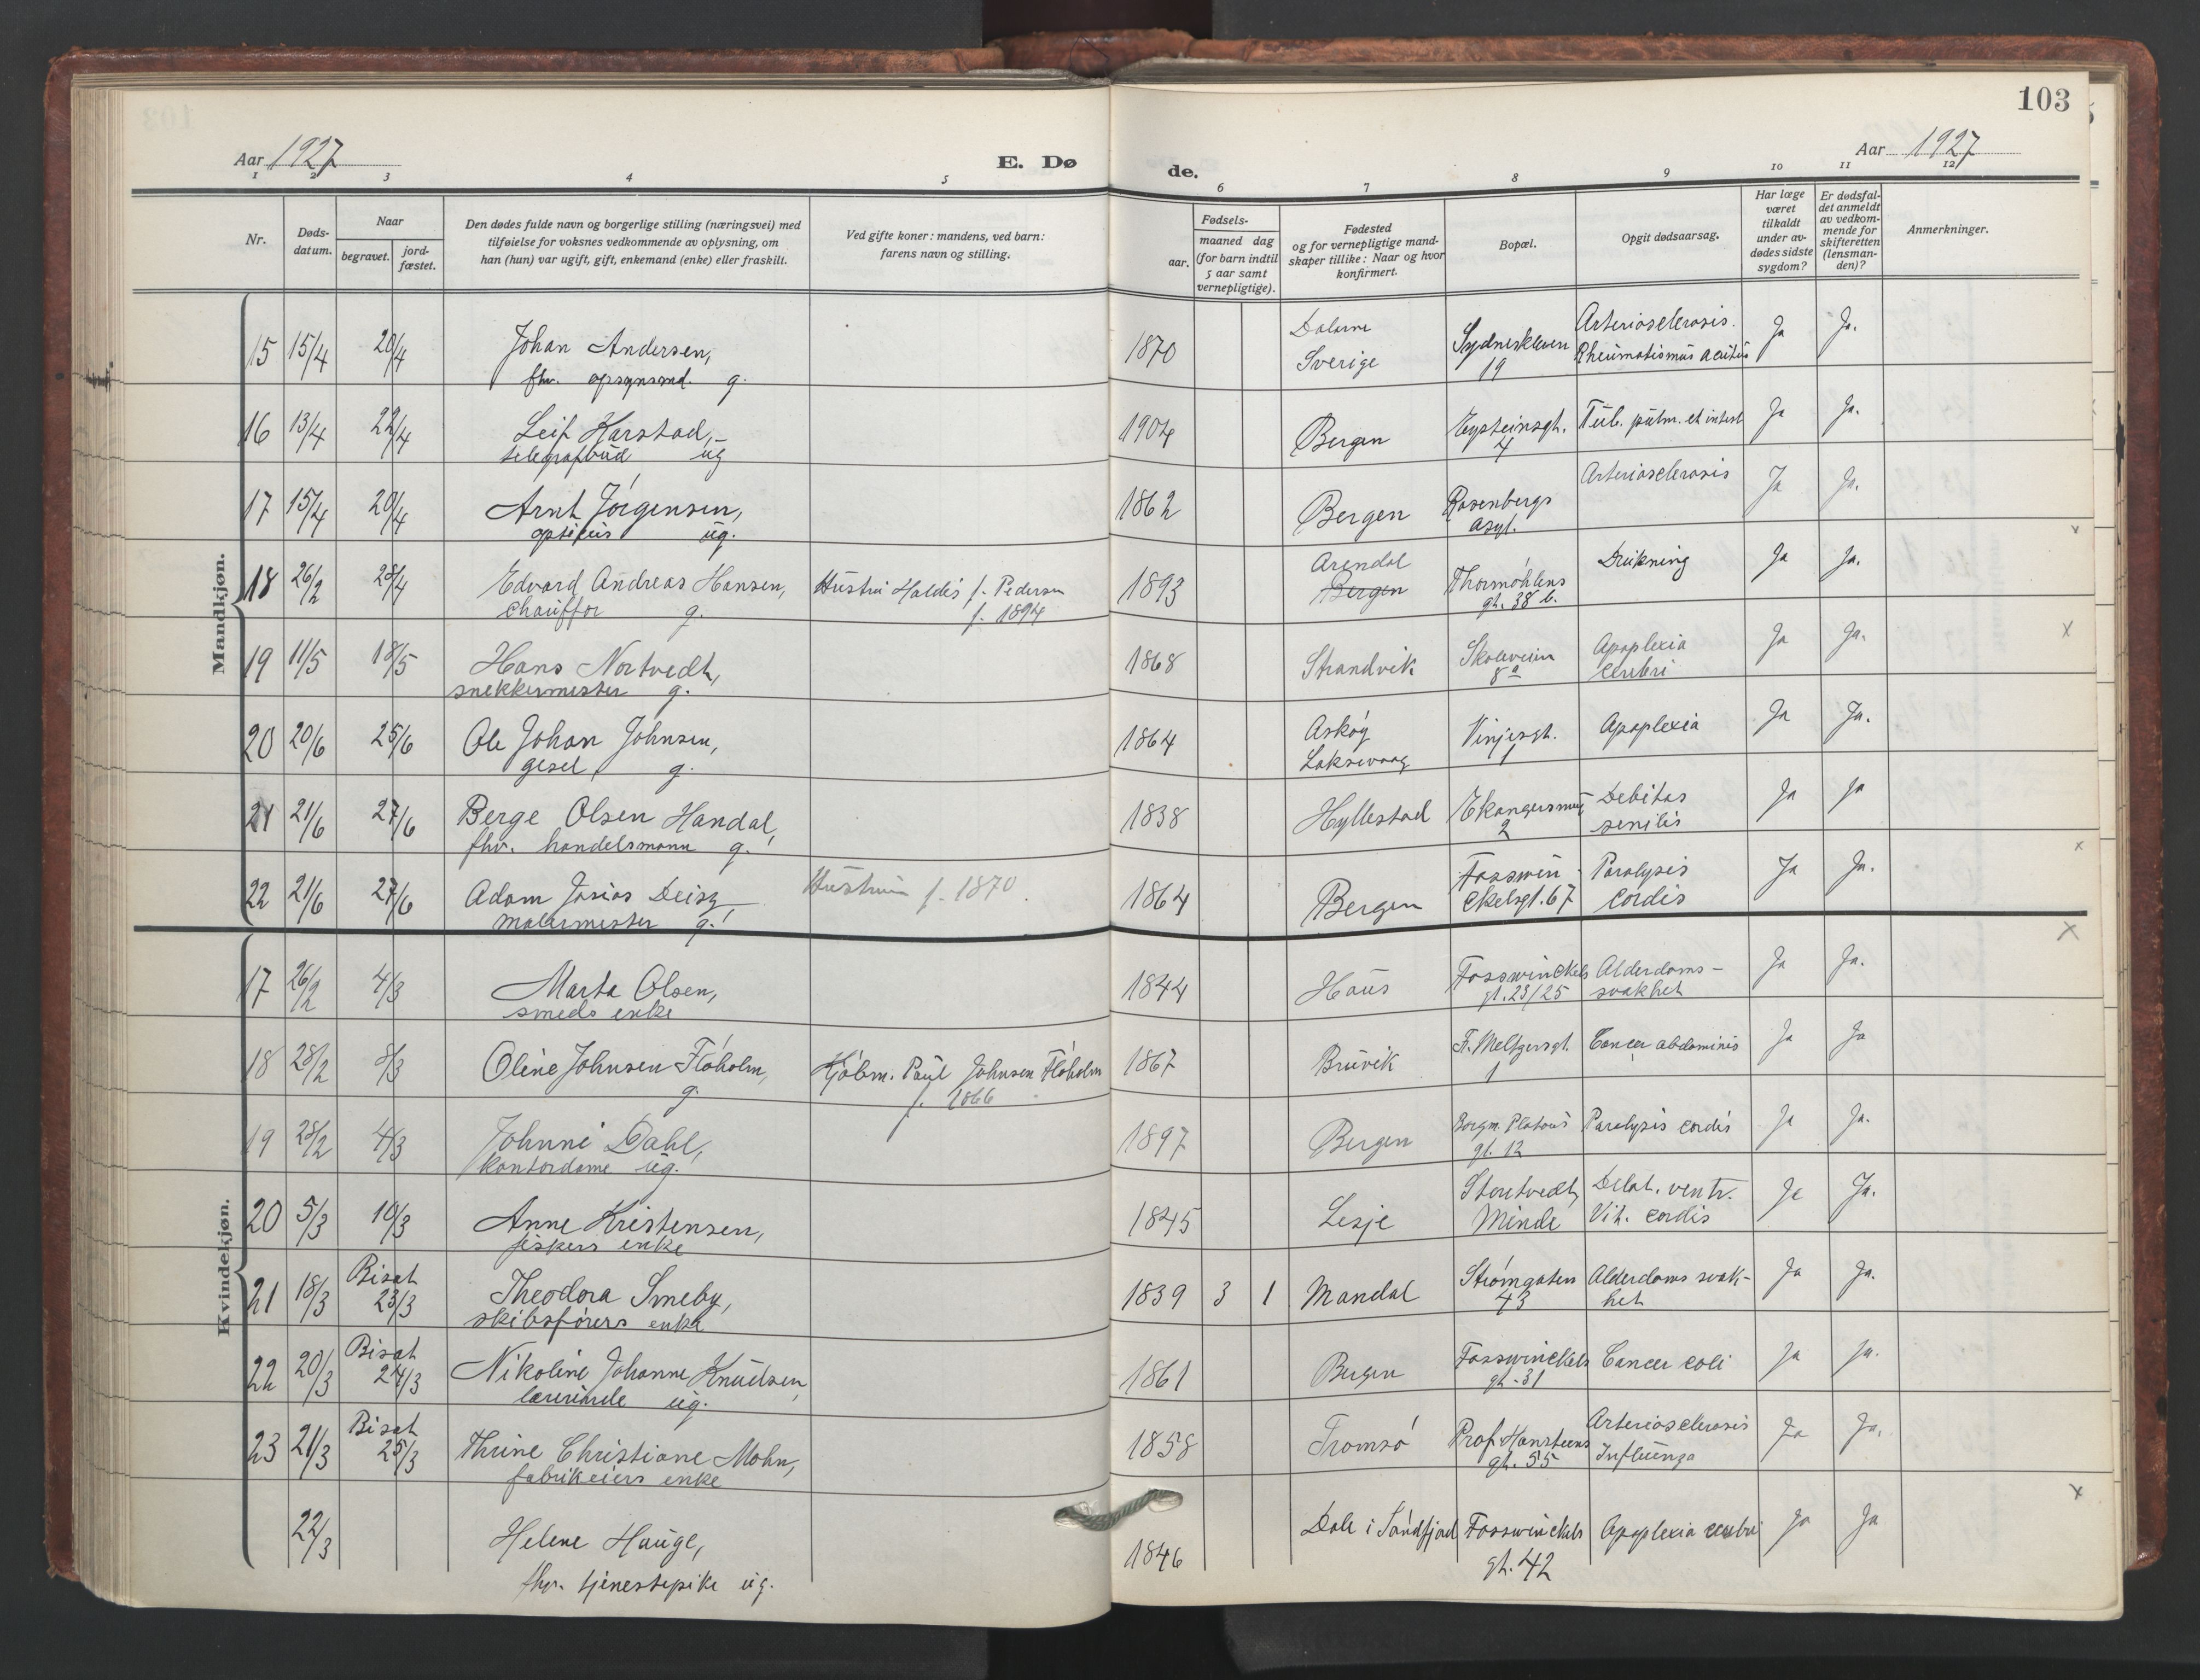 103
Aar 1927
E. Dø de.
Aar 1927
1 2 3 4 5 6 7 8 9 10 11 12
Nr.
Døds-
datum.
Naar
begravet.
jord-
fæstet.
Den dødes fulde navn og borgerlige stilling (næringsvei) med
tilføielse for voksnes vedkommende av oplysning, om
han (hun) var ugift, gift, enkemand (enke) eller fraskilt.
Ved gifte koner: mandens, ved barn:
farens navn og stilling.
Fødsels-
aar.
maaned dag
(for barn indtil
5 aar samt
vernepligtige).
Fødested
og for vernepligtige mand-
skaper tillike: Naar og hvor
konfirmert.
Bopæl.
Opgit dødsaarsag.
Har læge
været
tilkaldt
under av-
dødes sidste
sygdom?
Er dødsfal-
det anmeldt
av vedkom-
mende for
skifteretten
(lensman-
den)?
Anmerkninger.
Mandkjøn.
15 15/4 20/4 Johan Andersen, 1870 Dalarne Sydneskleven Arteriosclerosis. Ja Ja.
fhv. opsynsmd. g. Sverige 19 Rheumatismus acutus
16 13/4 22/4 Leif Harstad, 1904 Bergen Eysteinsgt. Tub. pulm. et intest Ja Ja.
telegrafbud ug 4
17 15/4 20/4 Arnt Jørgensen, 1862 Bergen Rosenbergs Arteriosclerosis Ja Ja.
optikus ug. asyl.
18 26/2 28/4 Edvard Andreas Hansen, Hustru Haldis f. Pedersen 1893 Arendal Thormøhlens Drukning Ja Ja.
chauffør g. f. 1894 Bergen gt. 38 b.
19 11/5 18/5 Hans Nortvedt, 1868 Strandvik Skoleveien Apoplexia Ja Ja. x
snekkermester g. 8a cerebri
20 20/6 25/6 Ole Johan Johnsen, 1864 Askøy Vinjesgt. Apoplexia Ja Ja.
gesel g. Laksevaag 1
21 21/6 27/6 Berge Olsen Handal, 1838 Hyllestad Ekangersmug Debitas Ja Ja
fhv. handelsmann g. 2 senilis
22 21/6 27/6 Adam Josias Deisz, Hustru f. 1870. 1864 Bergen Fosswin- Paralysis Ja Ja.
malermester g. ckelsgt. 67 cordis
Kvindekjøn.
17 26/2 4/3 Marta Olsen, 1844 Haus Fosswinckels Alderdoms- Ja Ja.
smeds enke gt. 23/25 svakhet
18 28/2 8/3 Oline Johnsen Fløholm, Kjøbm. Paul Johnsen Fløholm 1867 Bruvik F. Meltzersgt. Cancer abdominis Ja Ja
g. f. 1866 1
19 28/2 4/3 Johnni Dahl, 1897 Bergen Borgm. Platous Paralysis cordis Ja Ja.
kontordame ug. gt. 12
20 5/3 10/3 Anne Kristensen, 1845 Lesje Storetvedt, Delat. ventr. Ja Ja.
fiskers enke Minde Vit. cordis
21 18/3 Bisat 23/3 Theodora Smeby, 1839 3 1 Mandal Strømgaten Alderdoms svak- Ja Ja.
skibsførers enke 43 het
22 20/3 Bisat 24/3 Nikoline Johanne Knudsen, 1861 Bergen Fosswinckels Cancer coli Ja Ja.
lærerinde ug. gt. 31
23 21/3 Bisat 25/3 Thrine Christiane Mohn, 1858 Tromsø Prof. Hansteens Arteriosclerosis Ja Ja.
fabrikeiers enke gt. 55 Influenza
22/3 Helene Hauge, 1846 Dale i Søndfjord Fosswinckels Apoplexia cerebri Ja Ja x
fhv. tjenestepike ug. gt. 42